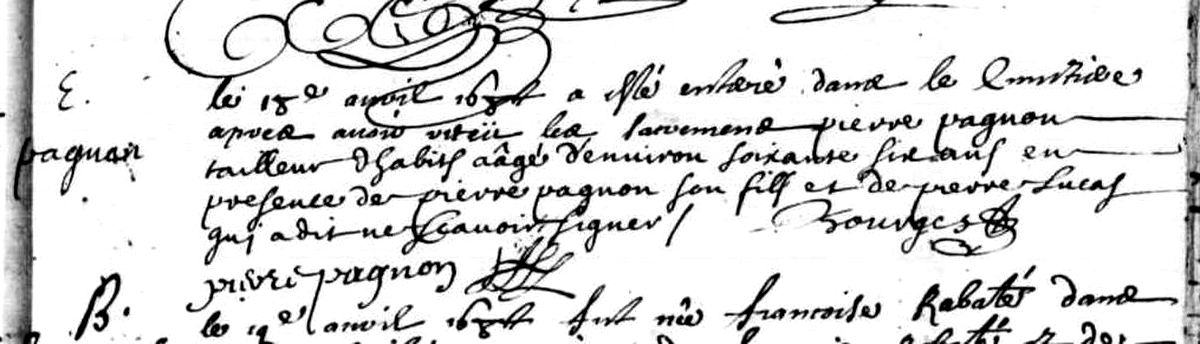 E.
pagnon
le 18e auril 168 a esté enteré dans le Cimitiere
apres auoir receu les sacremens pierre pagnon
tailleur d'habits aâgé d'enuiron soixante six ans en
presence de pierre pagnon son fils et de pierre Lucas
qui a dit ne scauoir signer / Bourges
pierre pagnon
B.
le 19e auril fut née francoise Rabaté dans